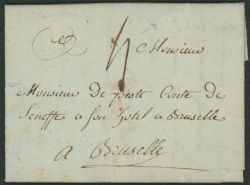 4
Monsieur
Monsieur De peste Conte de
Seneffe a son hotel a Bruselle
a Bruselle